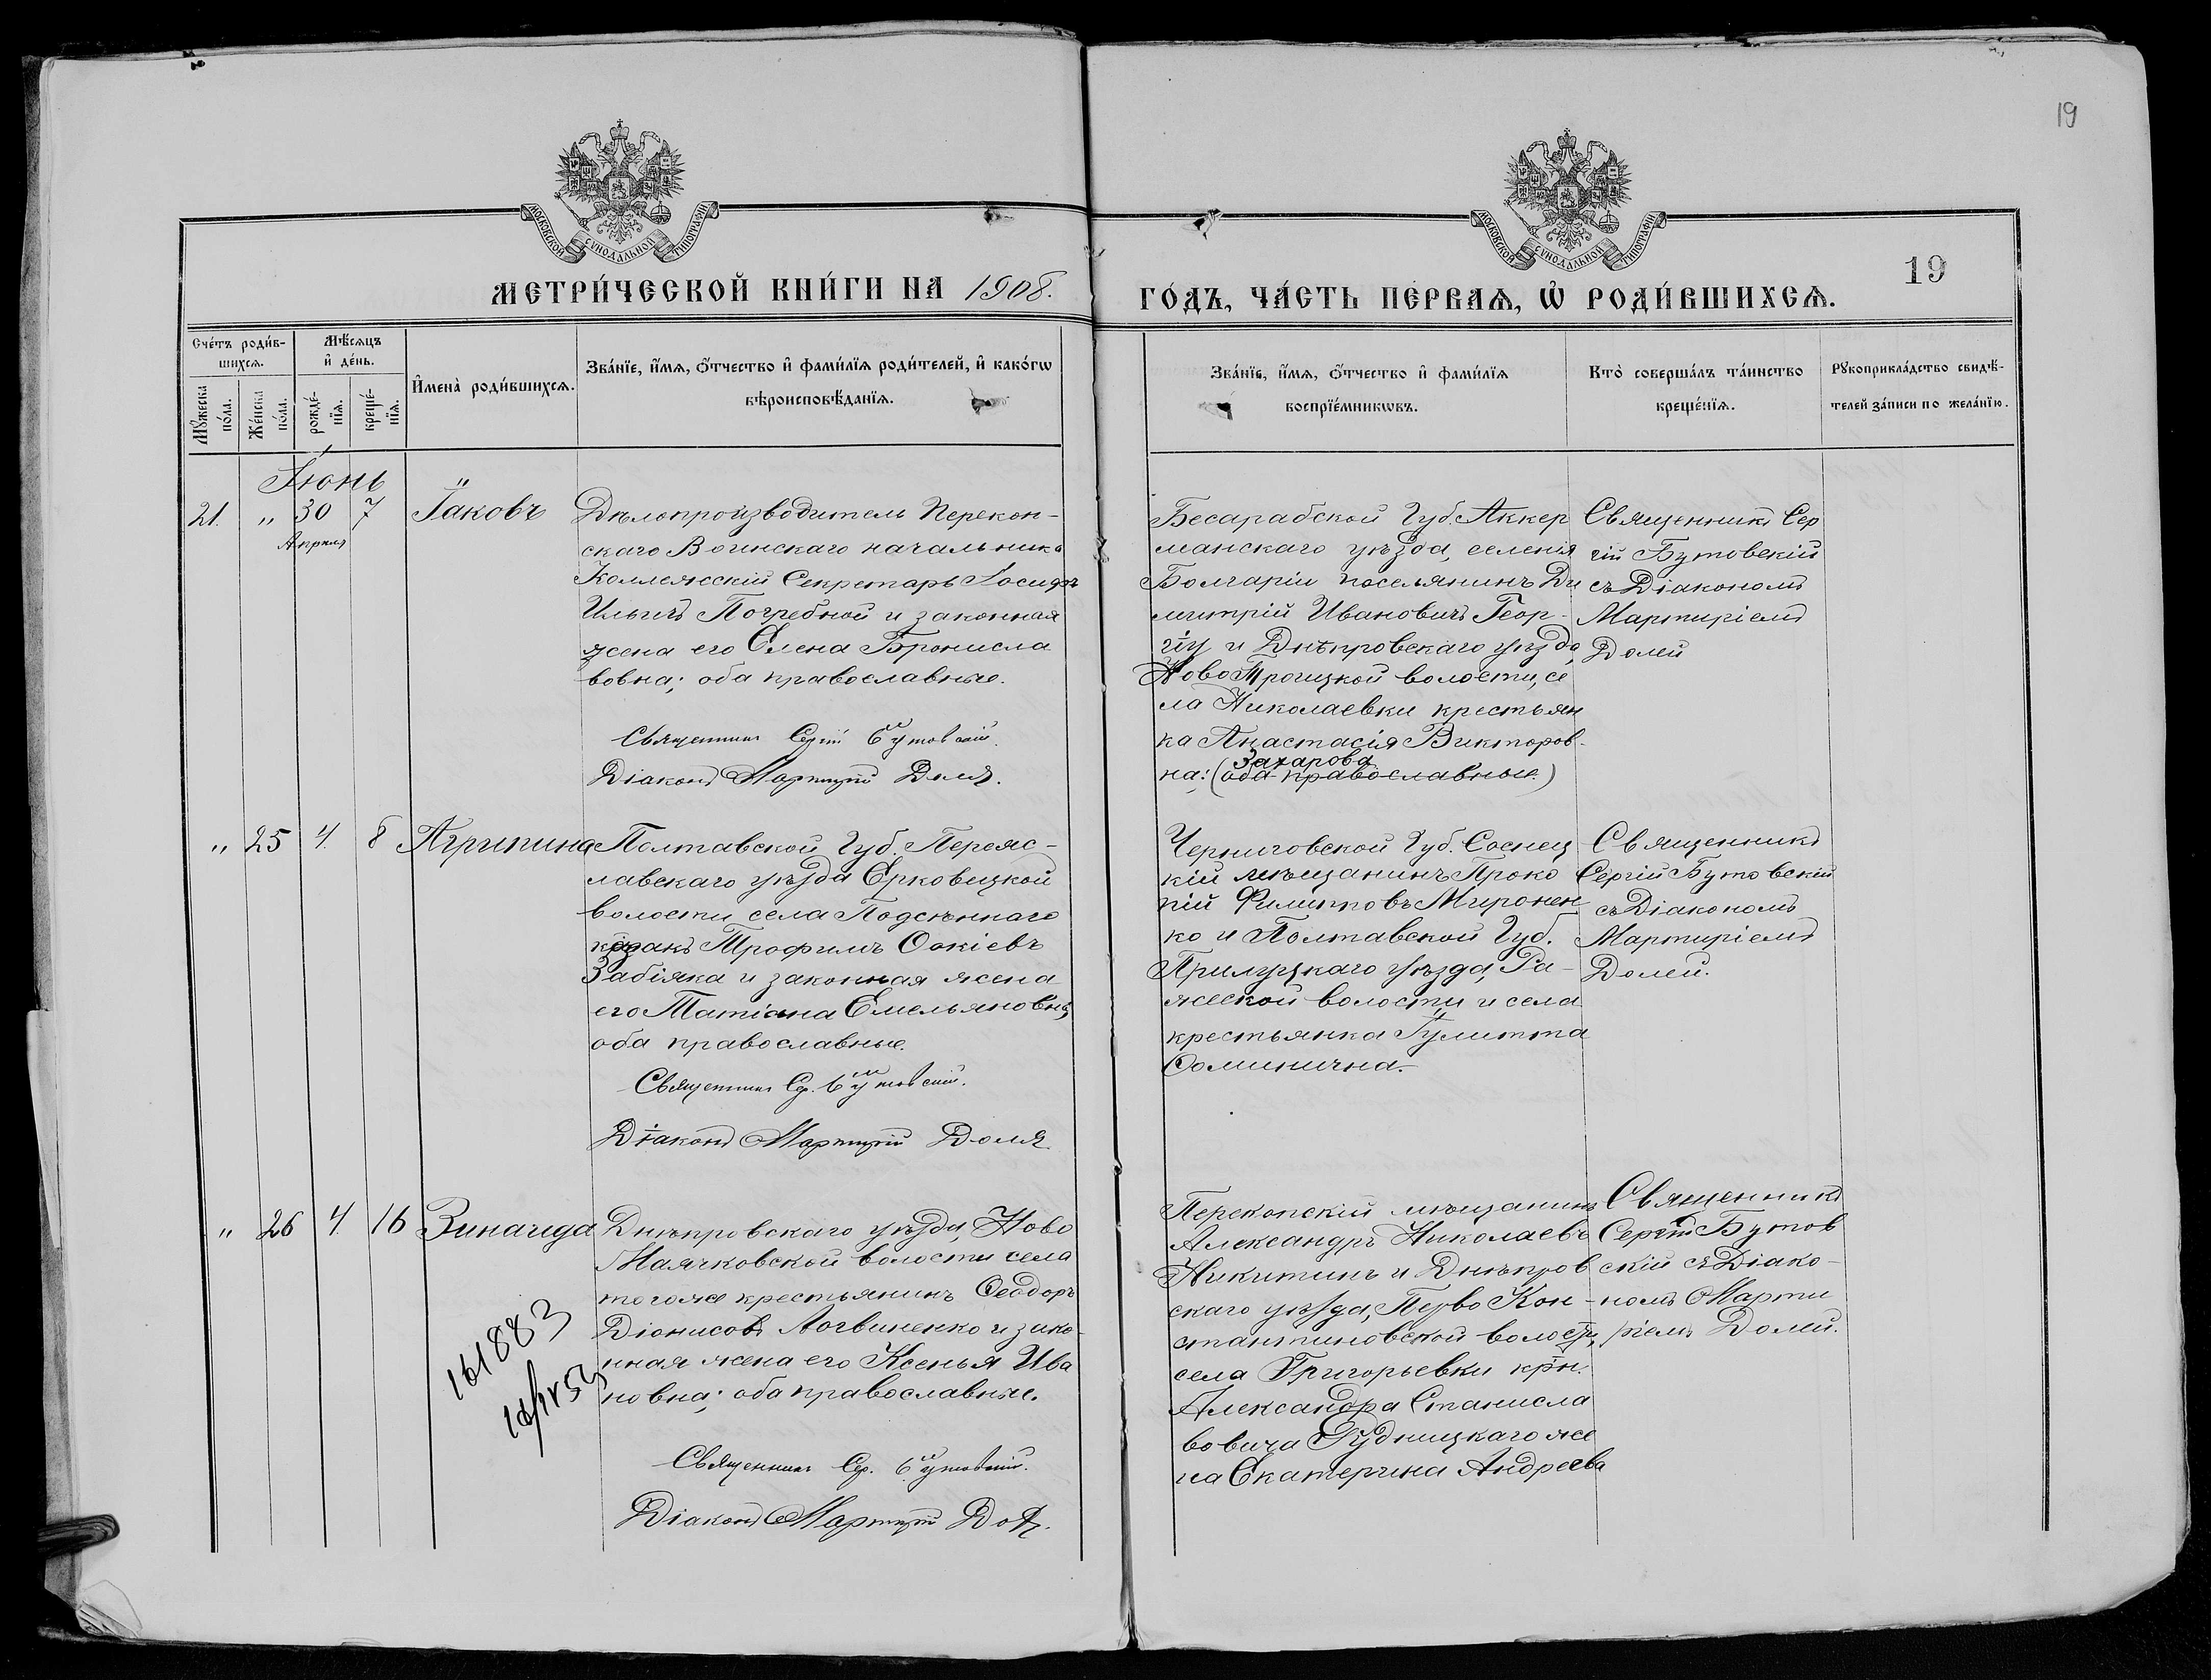 19
МОСКОВСКОЙ СѴНОДАЛЬНОЙ ТИПОГРАФІИ
МОСКОВСКОЙ СѴНОДАЛЬНОЙ ТИПОГРАФІИ
19
МЕТРИ́ЧЕСКОЙ КНИ́ГИ НА 1908.
ГО́ДЪ, ЧА́СТЬ ПЕ́РВАѦ, Ѡ҆ РОДИ́ВШИХСѦ.
Сче́тъ роди́в-
шихсѧ.
Мꙋ́жеска
по́ла.
Же́нска
по́ла.
Мѣ́сѧцъ
и҆ де́нь.
рожде́-
нїѧ.
креще́-
нїѧ.
И҆мена̀ роди́вшихсѧ.
Зва́нїе, и҆́мѧ, ѻ҆́тчество и҆ фами́лїѧ роди́телей, и҆ како́гѡ
вѣроисповѣ́данїѧ.
Зва́нїе, и҆́мѧ, ѻ҆́тчество и҆ фами́лїѧ
воспрїе́мникѡвъ.
Кто̀ соверша́лъ та́инство
креще́нїѧ.
Рꙋкоприкла́дство свидѣ́-
телей за́писи по жела́нїю.
Іюнь
21. „ 30 7 Іаковъ
Апрѣля
Дѣлопроизводитель Перекоп-
скаго Воинскаго начальника
Коллежскій Секретарь Іосифъ
Ильичъ Погребной и законная
жена его Елена Бронисла
вовна; оба православные.
Священникъ Сергій Бутовскій.
Діаконъ Мартирій Доля.
Бесарабской Губ. Аккер
манскаго уѣзда, селенія
Болгаріи поселянинъ Ди
митрій Ивановичъ Геор-
гіу и Днѣпровскаго уѣзда,
Ново Троицкой волости, се
ла Николаевки крестьян
ка Анастасія Викторов-
Захарова
на: (оба православные.)
Священникъ Сер
гій Бутовскій
съ Діакономъ
Мартиріемъ
Долей
„ 25 4. 8 Агрипина
Полтавской Губ. Переяс-
лавскаго уѣзда Ерковецкой
волости, села Подсѣннаго
козакъ Трофимъ Ѳокіевъ
Забіяка и законная жена
его Татіана Емельяновна,
оба православные.
Священникъ Сер. Бутовскій.
Діаконъ Мартирій Доля
Черниговской Губ. Соснец
кій мѣщанинъ Проко
пій Филипповъ Миронен
ко и Полтавской Губ.
Прилуцкаго уѣзда, Ра-
жеской волости, и села
крестьянка Іулитта
Ѳоминична.
Священникъ
Сергій Бутовскій
съ Діакономъ
Мартиріемъ
Долей.
„ 26 4. 16 Зинаида
Днѣпровскаго уѣзда, Ново
Маячковской волости села
тогоже крестьянинъ Ѳеодоръ
Діонисовъ Логвиненко и зако-
нная жена его Ксенья Ива
новна; оба православные.
161883
Священникъ Сер. Бутовскій.
Діаконъ Мартирій Доля.
Перекопскій мѣщанинъ
Александръ Николаевъ
Никитинъ и Днѣпров
скаго уѣзда, Перво Кон-
стантиновской волости,
села Григорьевки крн.
Александра Станисла
вовича Рудницкаго же
на Екатерина Андреева
Священникъ
Сергій Бутов
скій съ Діако-
номъ Марти
ріемъ Долей.